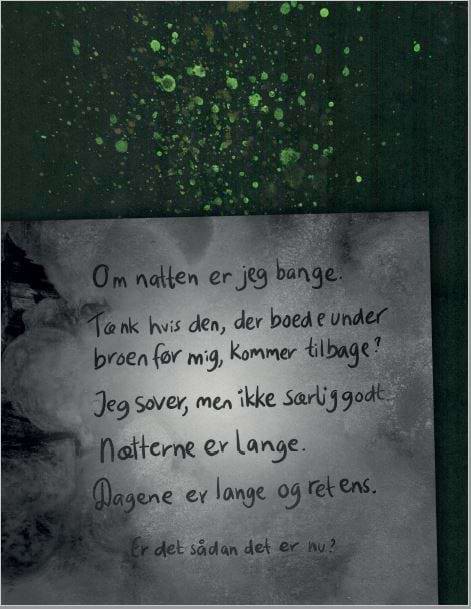 Om natten er jeg bange.
Tænk hvis den, der boede under
broen før mig, kommer tilbage?
Jeg sover, men ikke særlig godt.
Nætterne er lange.
Dagene er lange og ret ens.
Er det sådan det er nu?